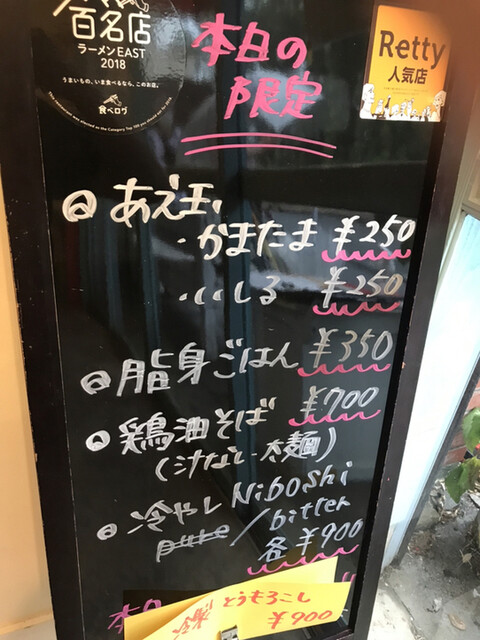 百名店
ラーメンEAST
2018
うまいもの、いま食べるなら、このお店。
食べログ
Retty
人気店
本日の
限定
あえ玉
・かまたま ¥250
・いしる ¥250
脂身ごはん ¥350
鶏油そば ¥700
(汁なし・太麺)
冷やし Niboshi
/bitter
各¥900
とうもろこし
¥900
本日